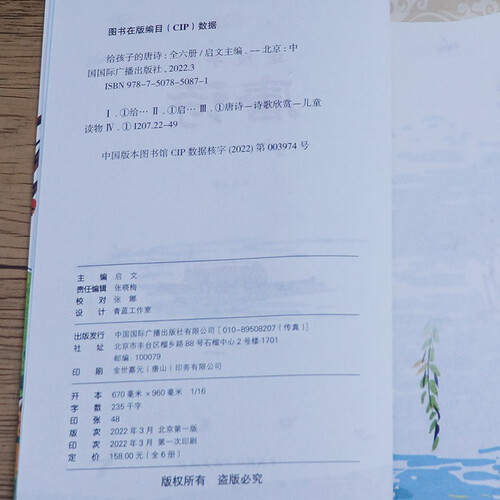 图书在版编目（CIP）数据
给孩子的唐诗：全六册 / 启文主编. -- 北京：中
国国际广播出版社，2022.3
ISBN 978-7-5078-5087-1
Ⅰ.①给… Ⅱ.①启… Ⅲ.①唐诗－诗歌欣赏－儿童
读物 Ⅳ.①I207.22-49
中国版本图书馆 CIP 数据核字 (2022) 第 003974 号
主 编 启 文
责任编辑 张晓梅
校 对 张 娜
设 计 青蓝工作室
出版发行 中国国际广播出版社有限公司［010-89508207（传真）］
社 址 北京市丰台区榴乡路 88 号石榴中心 2 号楼 1701
邮编：100079
印 刷 金世嘉元（唐山）印务有限公司
开 本 670 毫米 × 960 毫米 1/16
字 数 235 千字
印 张 48
版 次 2022 年 3 月 北京第一版
印 次 2022 年 3 月 第一次印刷
定 价 158.00 元（全 6 册）
版权所有 盗版必究